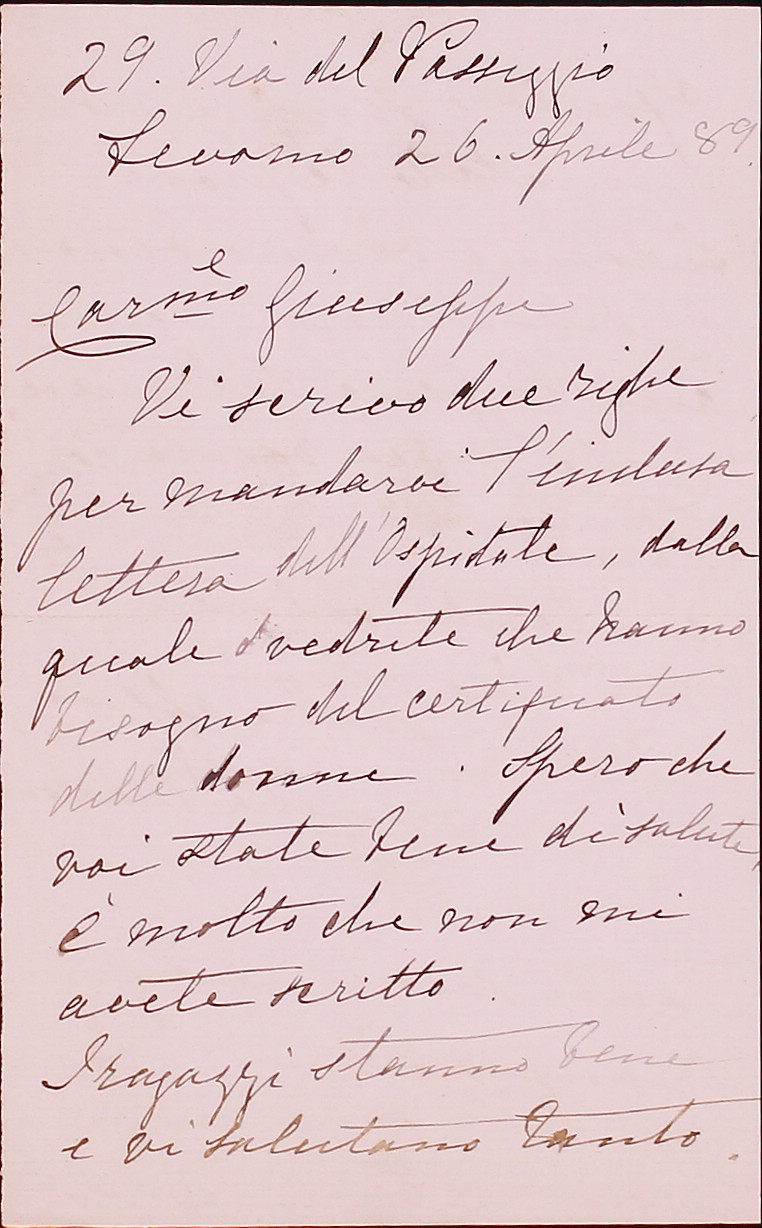 29. Via del Passeggio
Livorno 26. Aprile 89.
Carmo Giuseppe
Vi scrivo due righe
per mandarvi l'inclusa
lettera dell'Ospidale, dalla
quale vedrete che hanno
bisogno del certificato
delle donne. Spero che
voi state bene di salute,
è molto che non mi
avete scritto.
I ragazzi stanno bene
e vi salutano tanto.